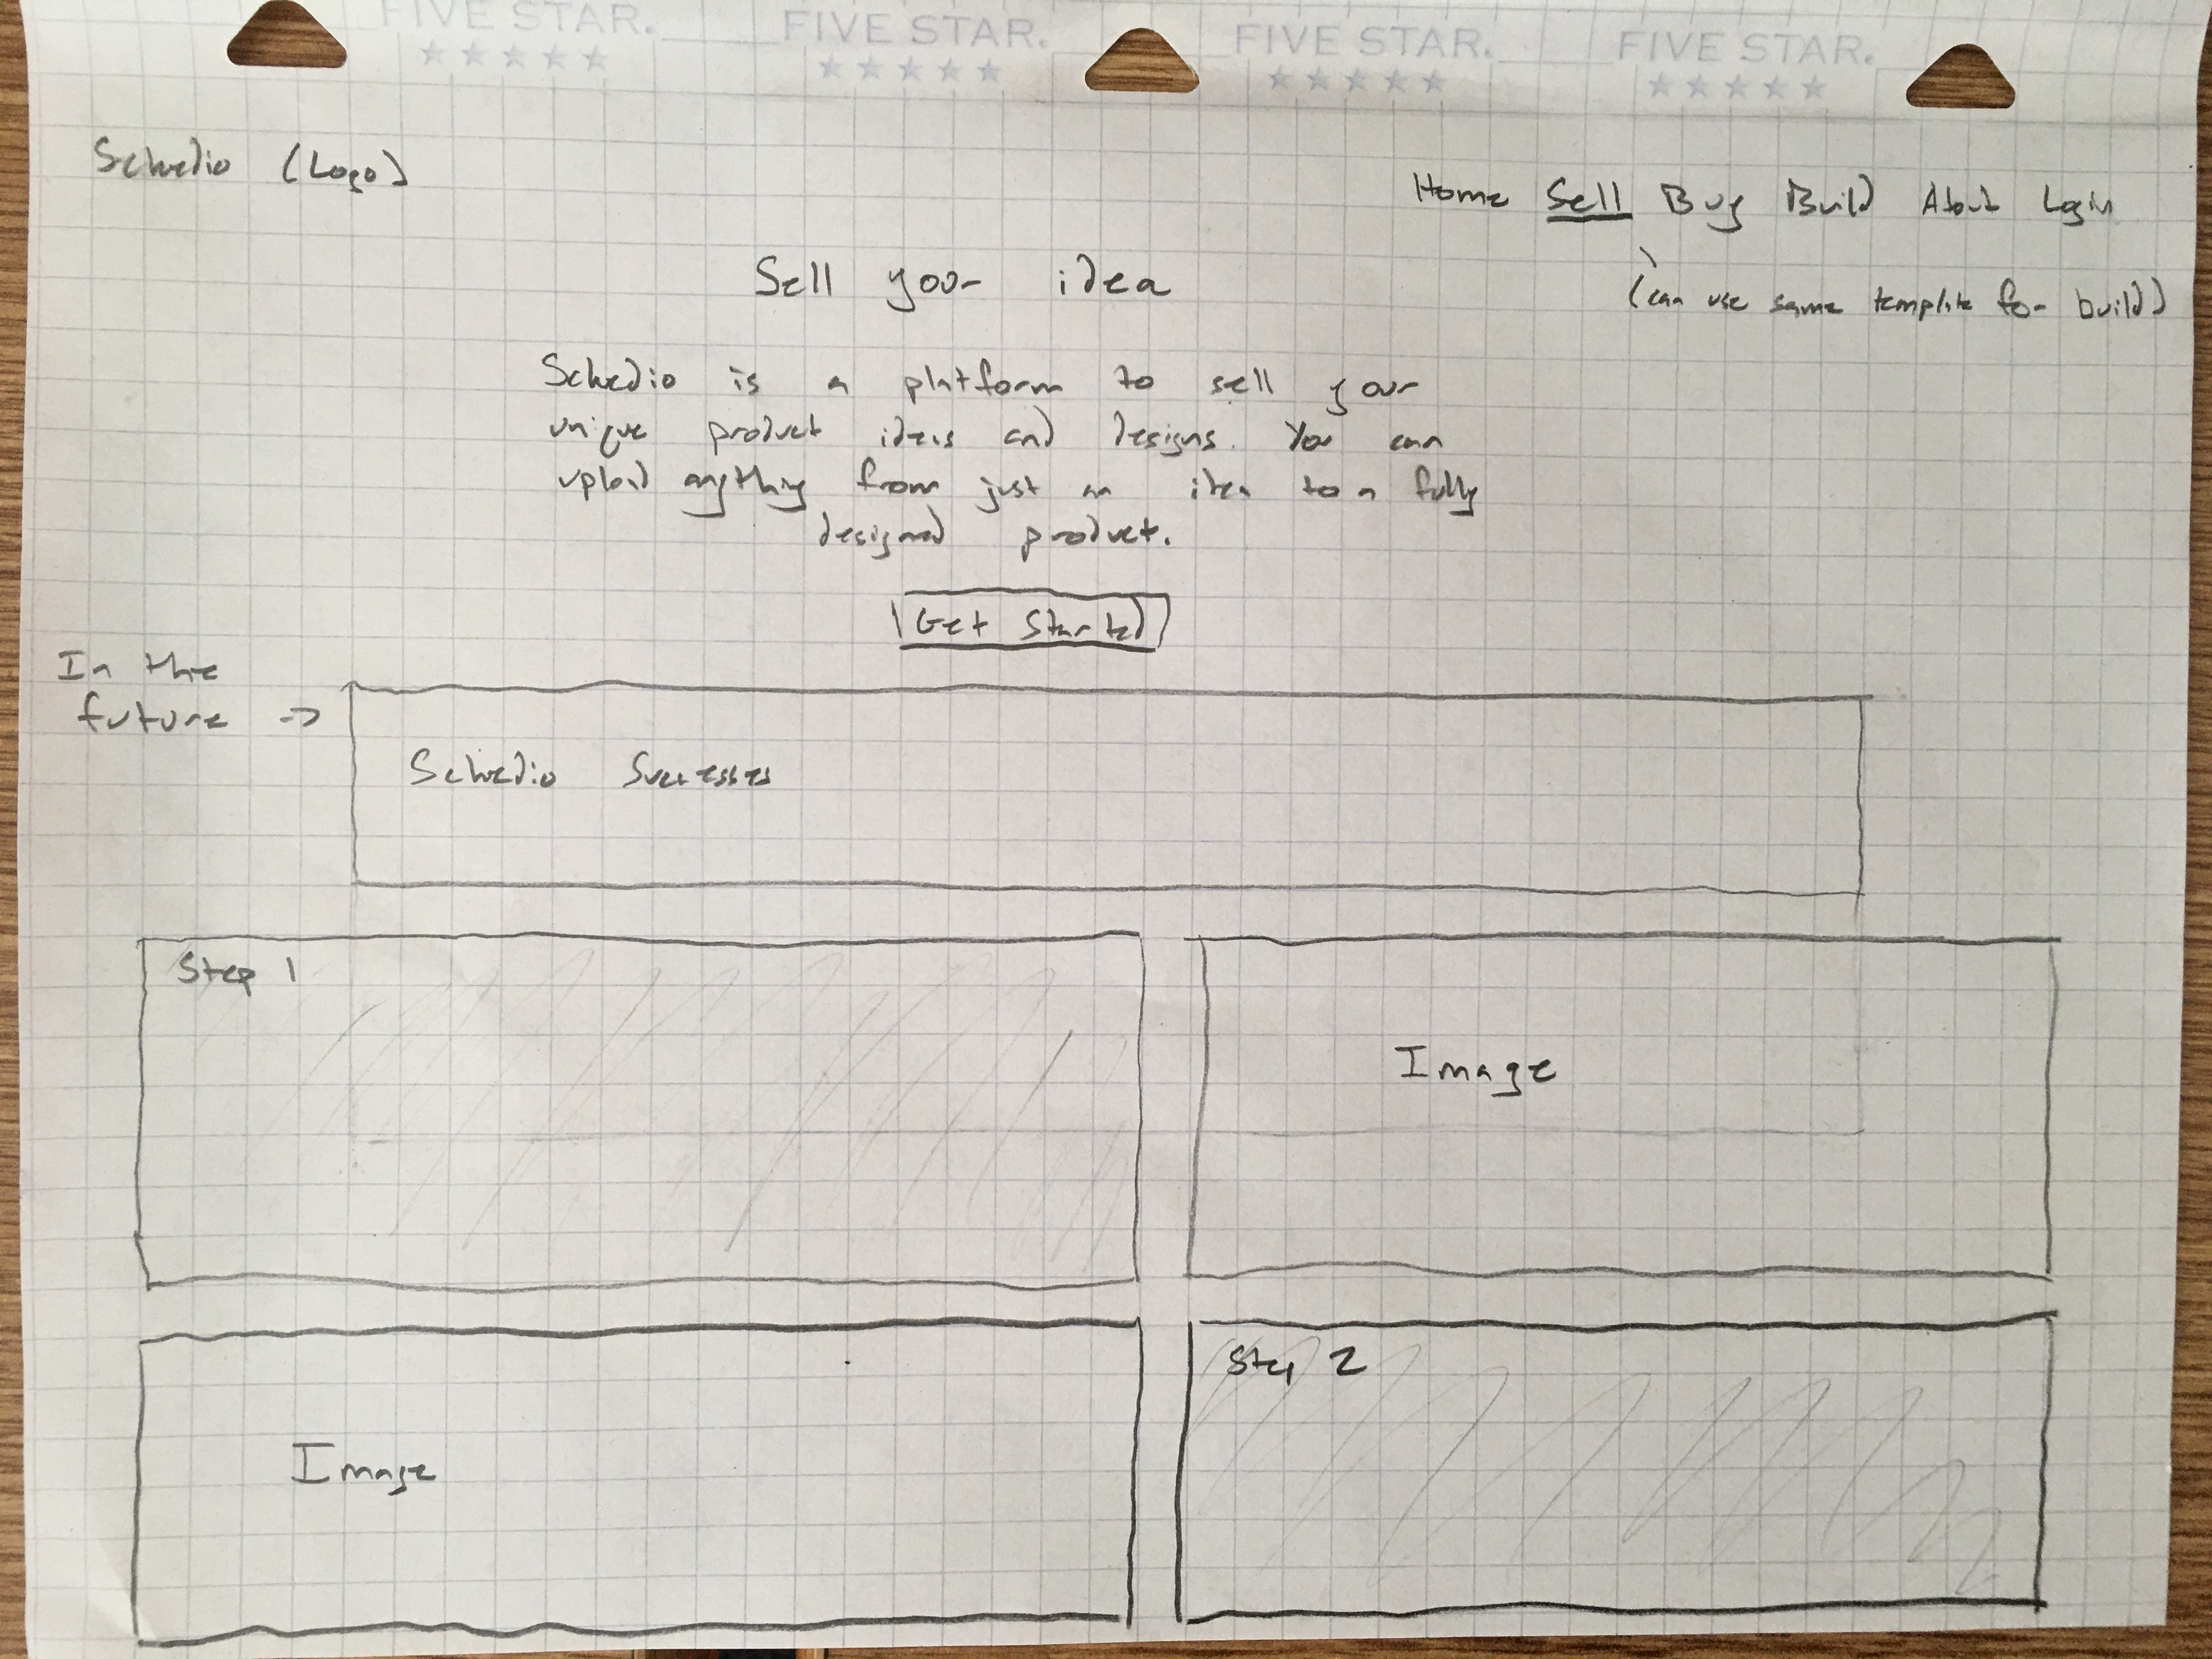 FIVE STAR.
FIVE STAR.
FIVE STAR.
FIVE STAR.
Schedio (Logo)
Home Sell Buy Build About Login
(can use same template for build)
Sell your idea
Schedio is a platform to sell your
unique product ideas and designs. You can
upload anything from just an idea to a fully
designed product.
Get Started
In the
future ->
Schedio Successes
Step 1
Image
Image
Step 2